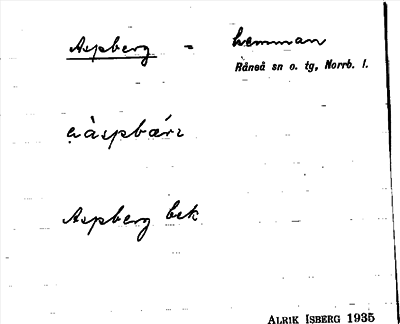 Aspberg - hemman
Råneå sn o. tg, Norrb. l.
Aspberg bek
ALRIK ISBERG 1935